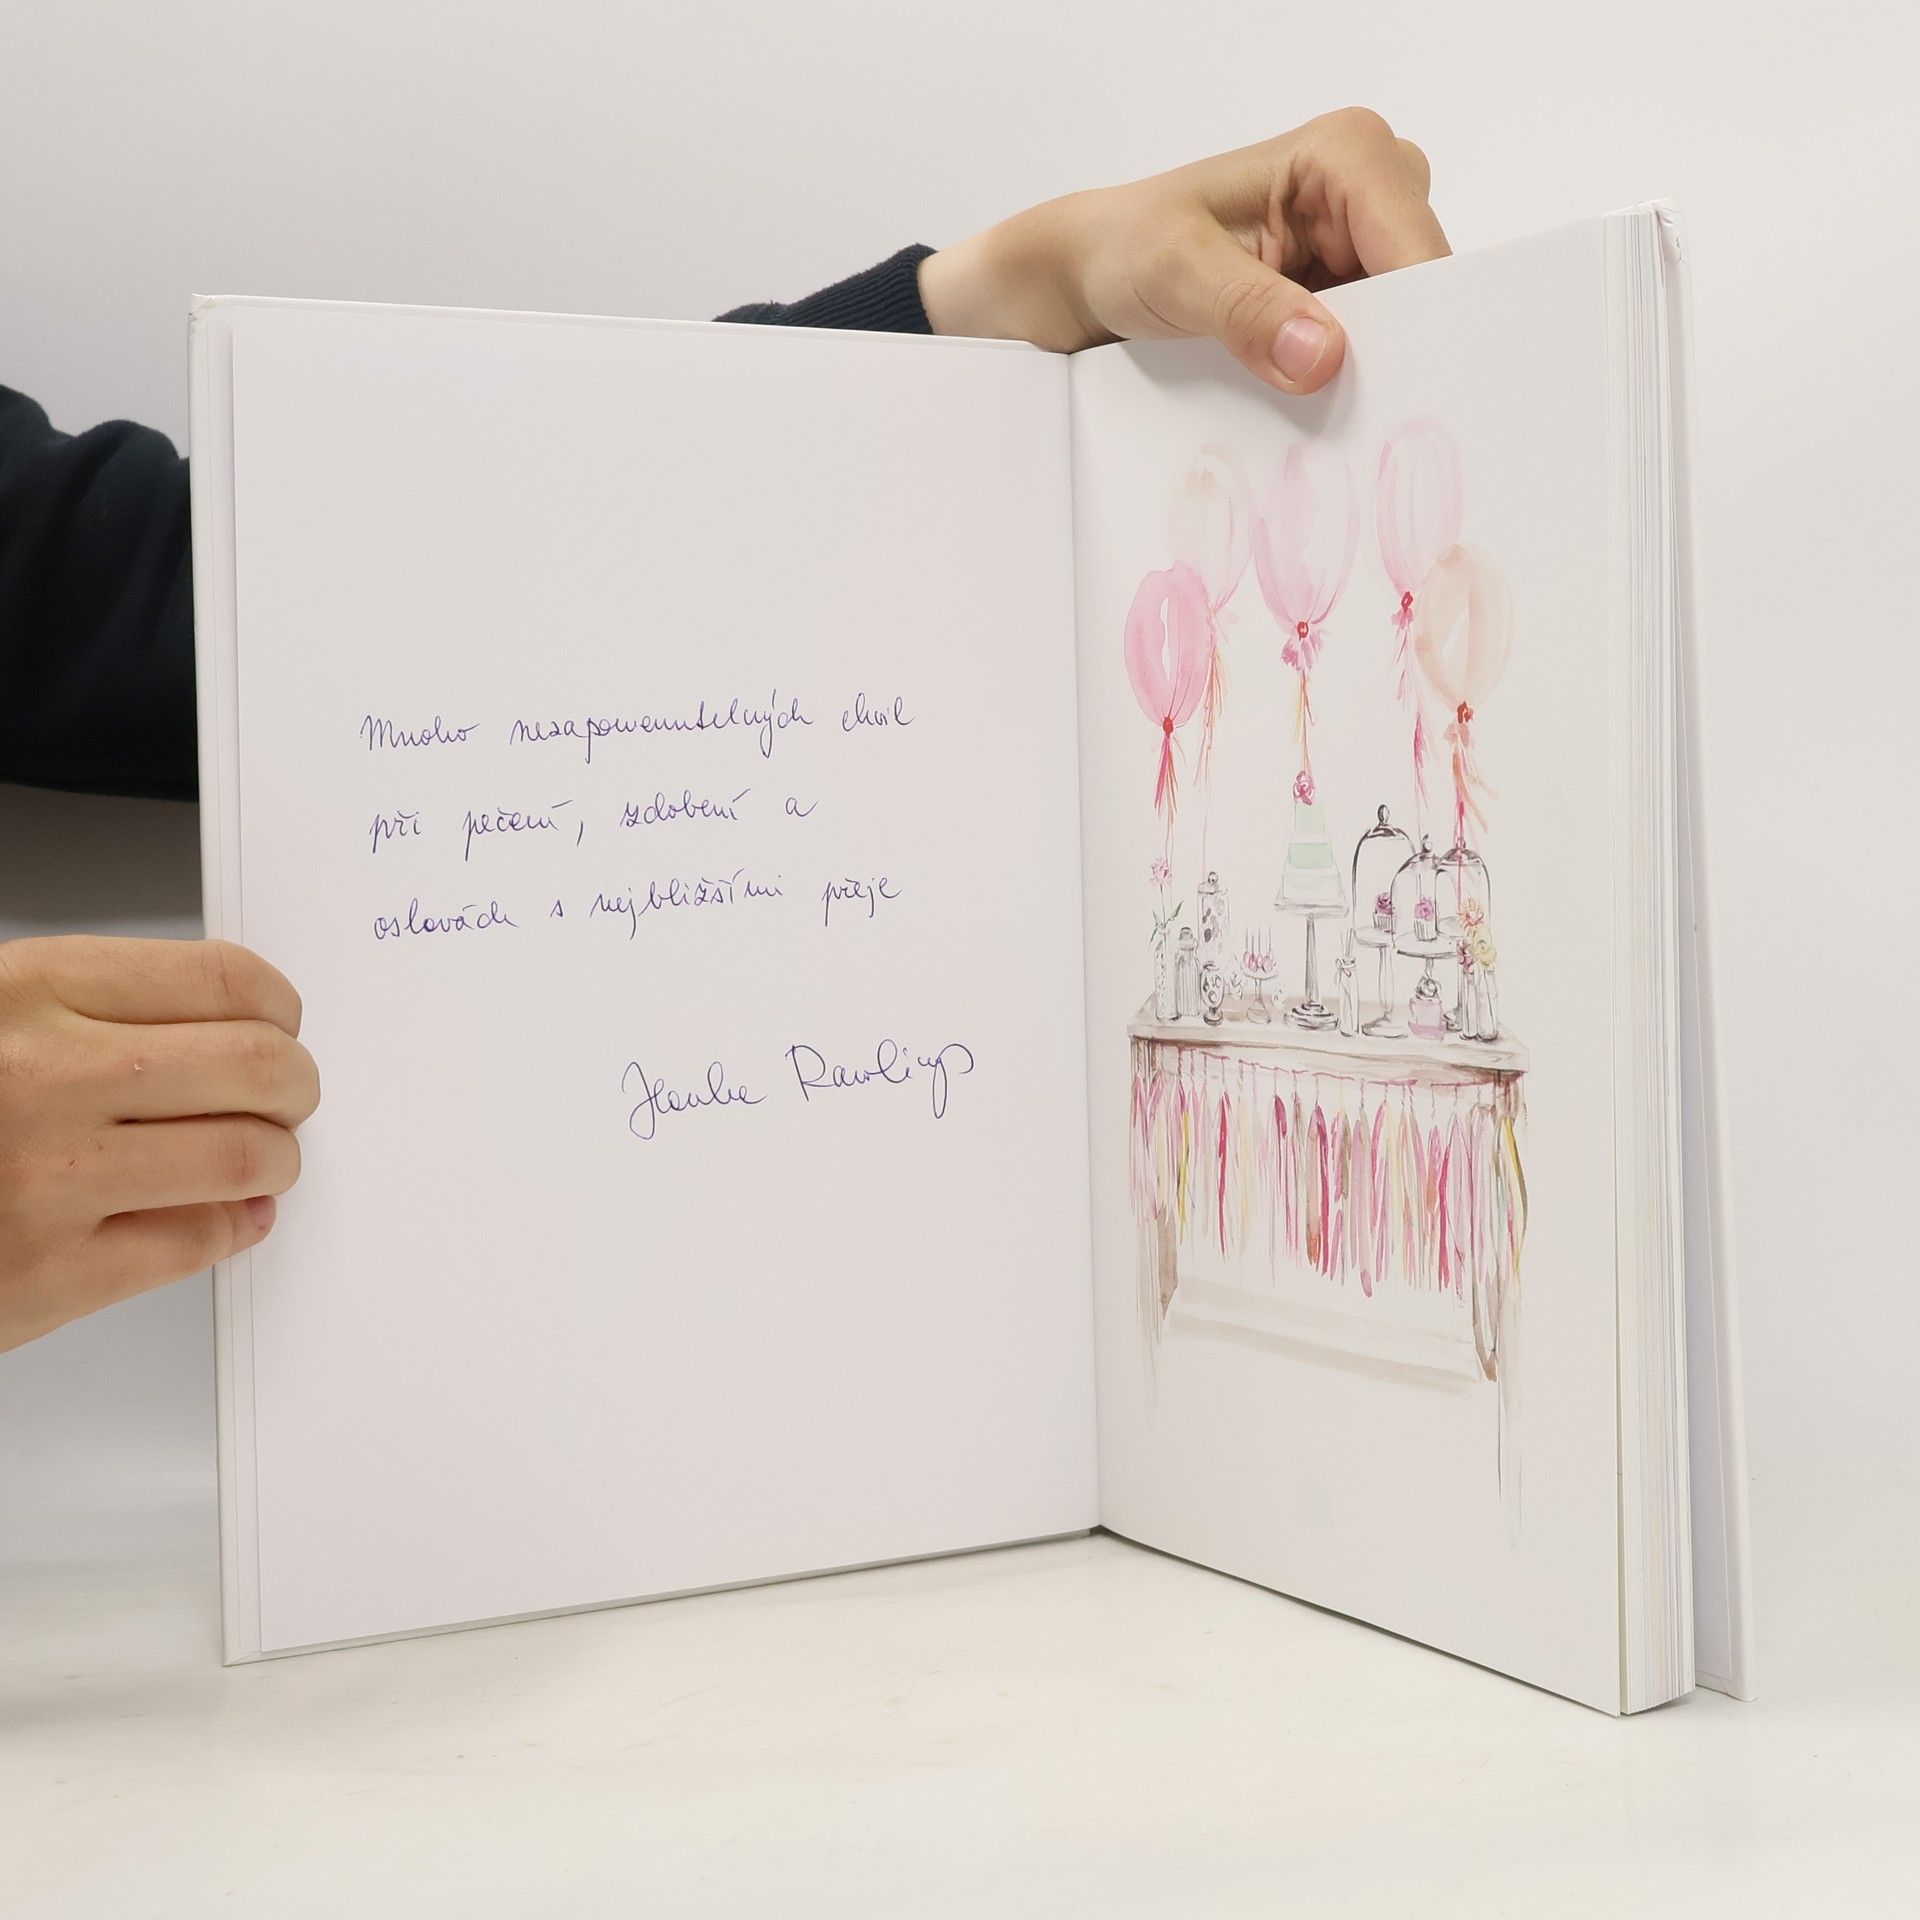 Mnoho nezapomenutelných chvil
při pečení, zdobení a
oslavách s nejbližšími přeje
Hanka Rawlings